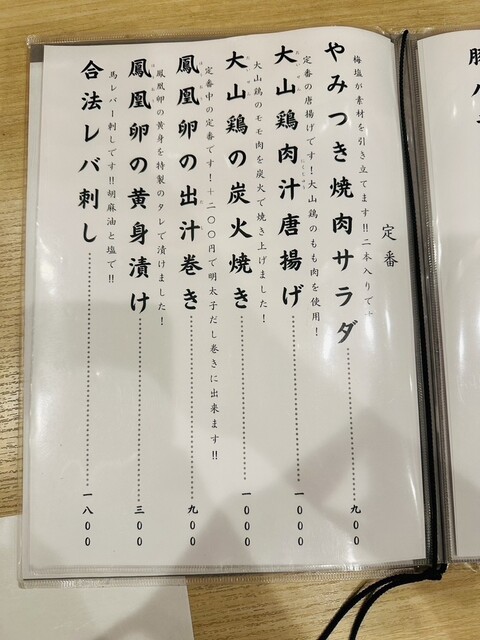 定番
梅塩が素材を引き立てます!!二本入りで
やみつき焼肉サラダ 九〇〇
定番の唐揚げです!大山鶏のもも肉を使用!
大山鶏肉汁唐揚げ 一〇〇〇
大山鶏のモモ肉を炭火で焼き上げました!
大山鶏の炭火焼き 一〇〇〇
定番中の定番です!+二〇〇円で明太子だし巻きに出来ます!!
鳳凰卵の出汁巻き 九〇〇
鳳凰卵の黄身を特製のタレで漬けました!
鳳凰卵の黄身漬け 三〇〇
馬レバー刺しです!!胡麻油と塩で!!
合法レバ刺し 一八〇〇